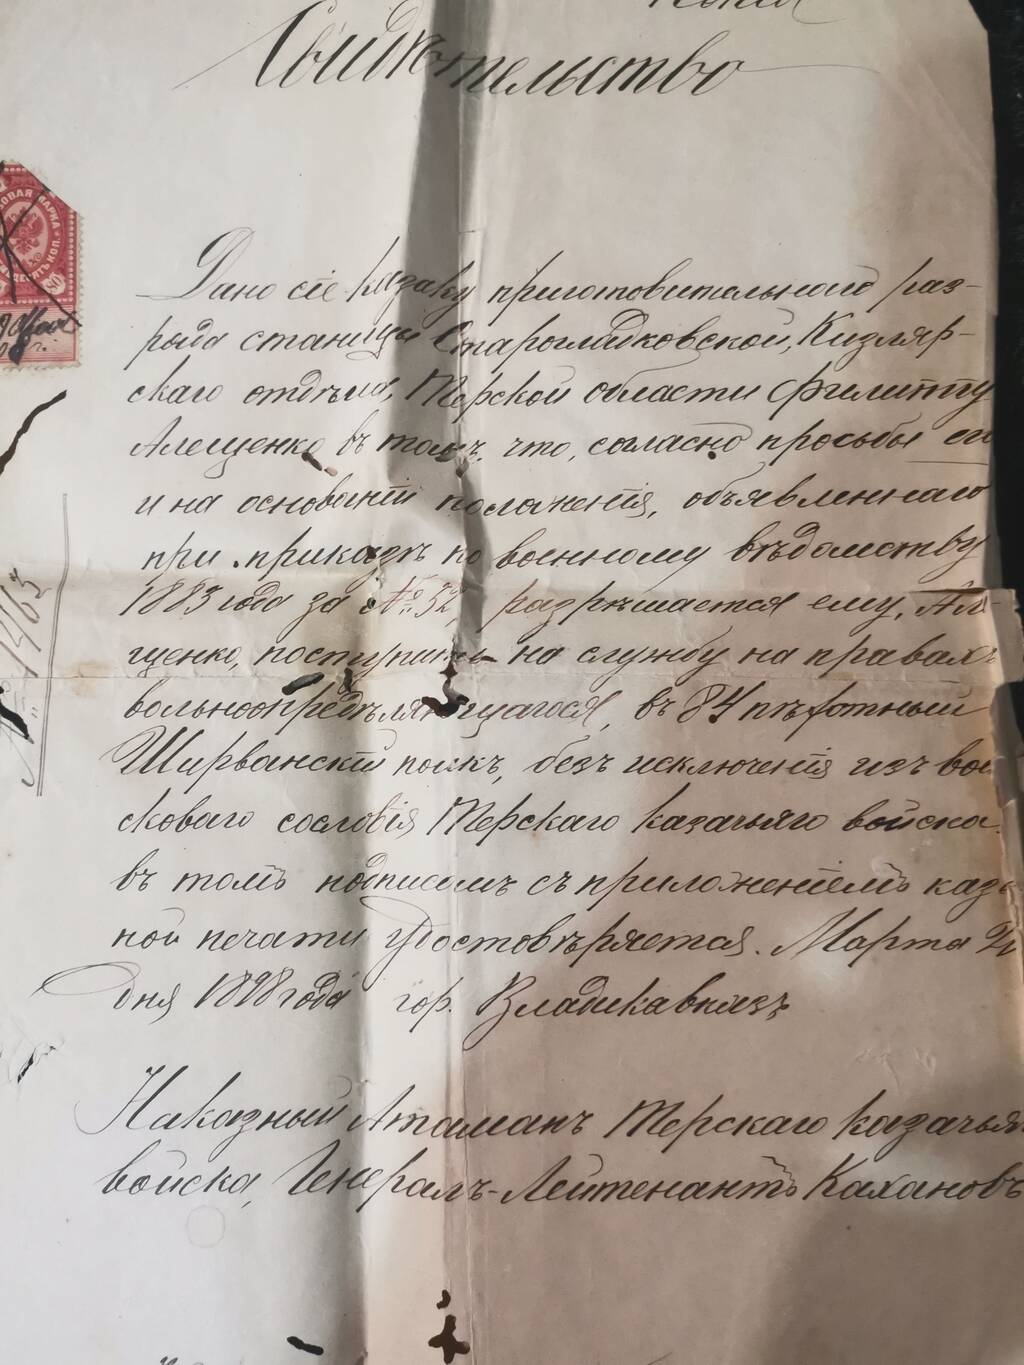 Копія
Свидѣтельство
Дано сіе казаку приготовительнаго раз-
ряда станицы Старогладковской, Кизляр-
скаго отдѣла, Терской области Филиппу
Алещенко въ томъ, что, согласно просьбы его
и на основаніи положенія, объявленнаго
при приказѣ по военному вѣдомству
1883 года за № 52, разрѣшается ему, Але-
щенко, поступить на службу на правахъ
вольноопредѣляющагося, въ 84 пѣхотный
Ширванскій полкъ, безъ исключенія изъ вой
сковаго сословія Терскаго казачьяго войска.
въ томъ подписомъ съ приложеніемъ казен
ной печати удостовѣряется. Марта
дня 1898 года гор. Владикавказъ
Наказный Атаманъ Терскаго казачьяго
войска, Генералъ-Лейтенантъ Кахановъ
ОВАЯ МАРКА
№ 1463